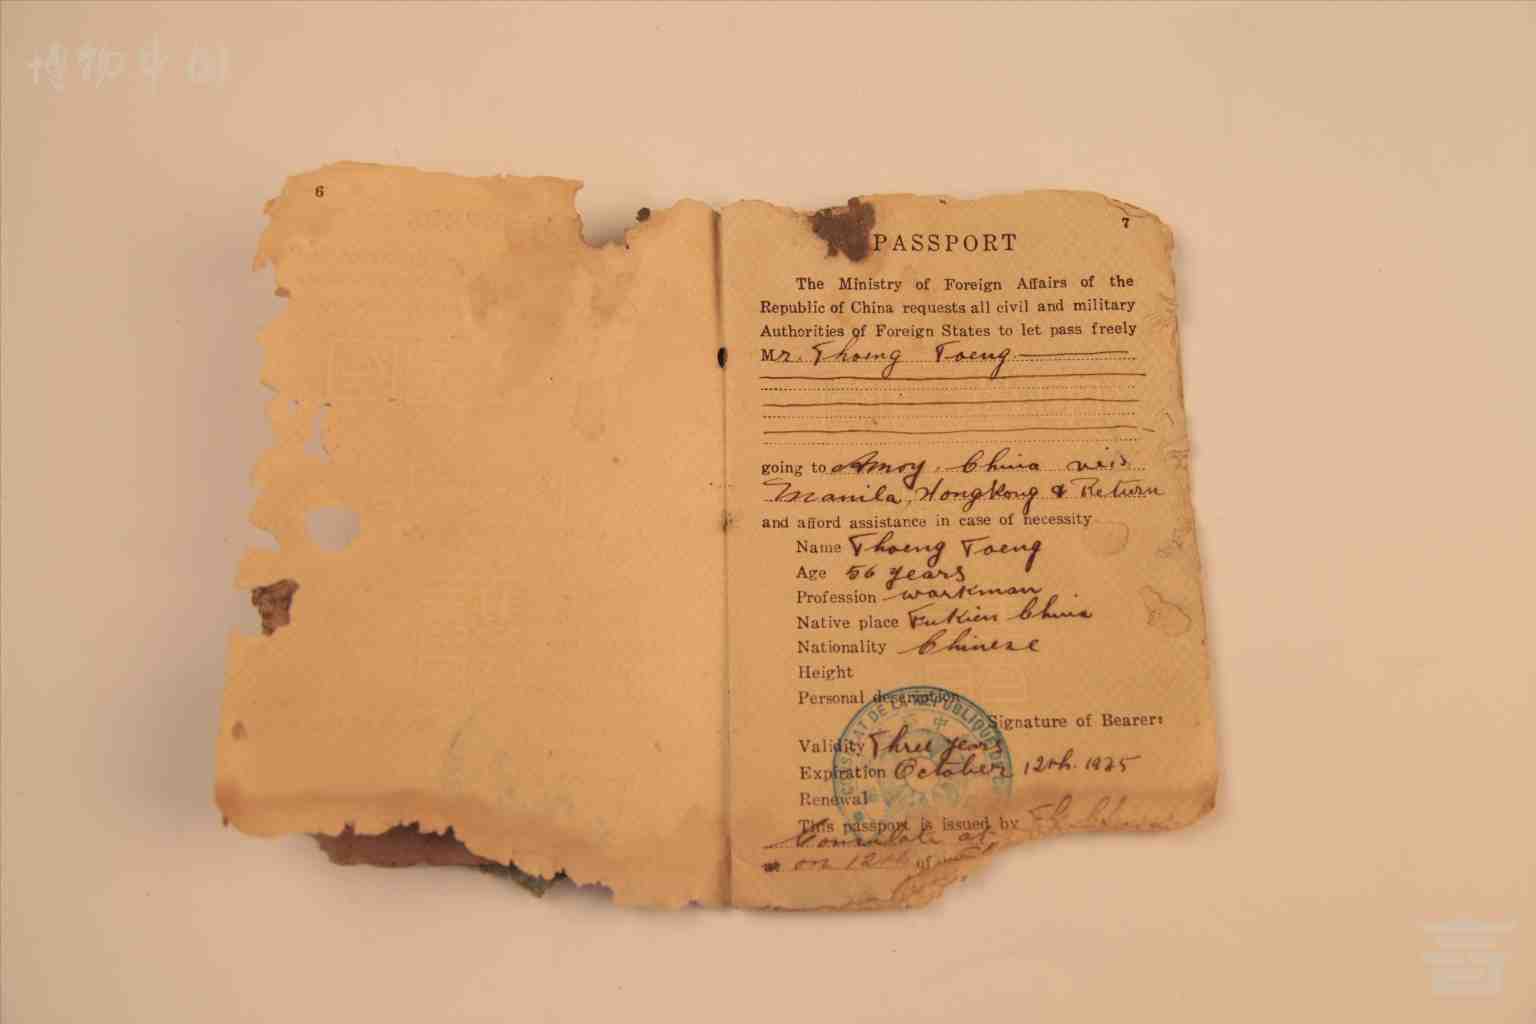 博物中国
6
7
PASSPORT
The Ministry of Foreign Affairs of the
Republic of China requests all civil and military
Authorities of Foreign States to let pass freely
Mr. Thoeng Toeng
going to Amoy, China via
Manila, Hongkong & Return
and afford assistance in case of necessity
Name Thoeng Toeng
Age 56 years
Profession workman
Native place Fukien China
Nationality Chinese
Height
Personal description
Signature of Bearer:
Validity Three years
Expiration October 12th. 1925
Renewal
This passport is issued by
Consulate at
on 12th of
CONSULAT DE LA REPUBLIQUE DE